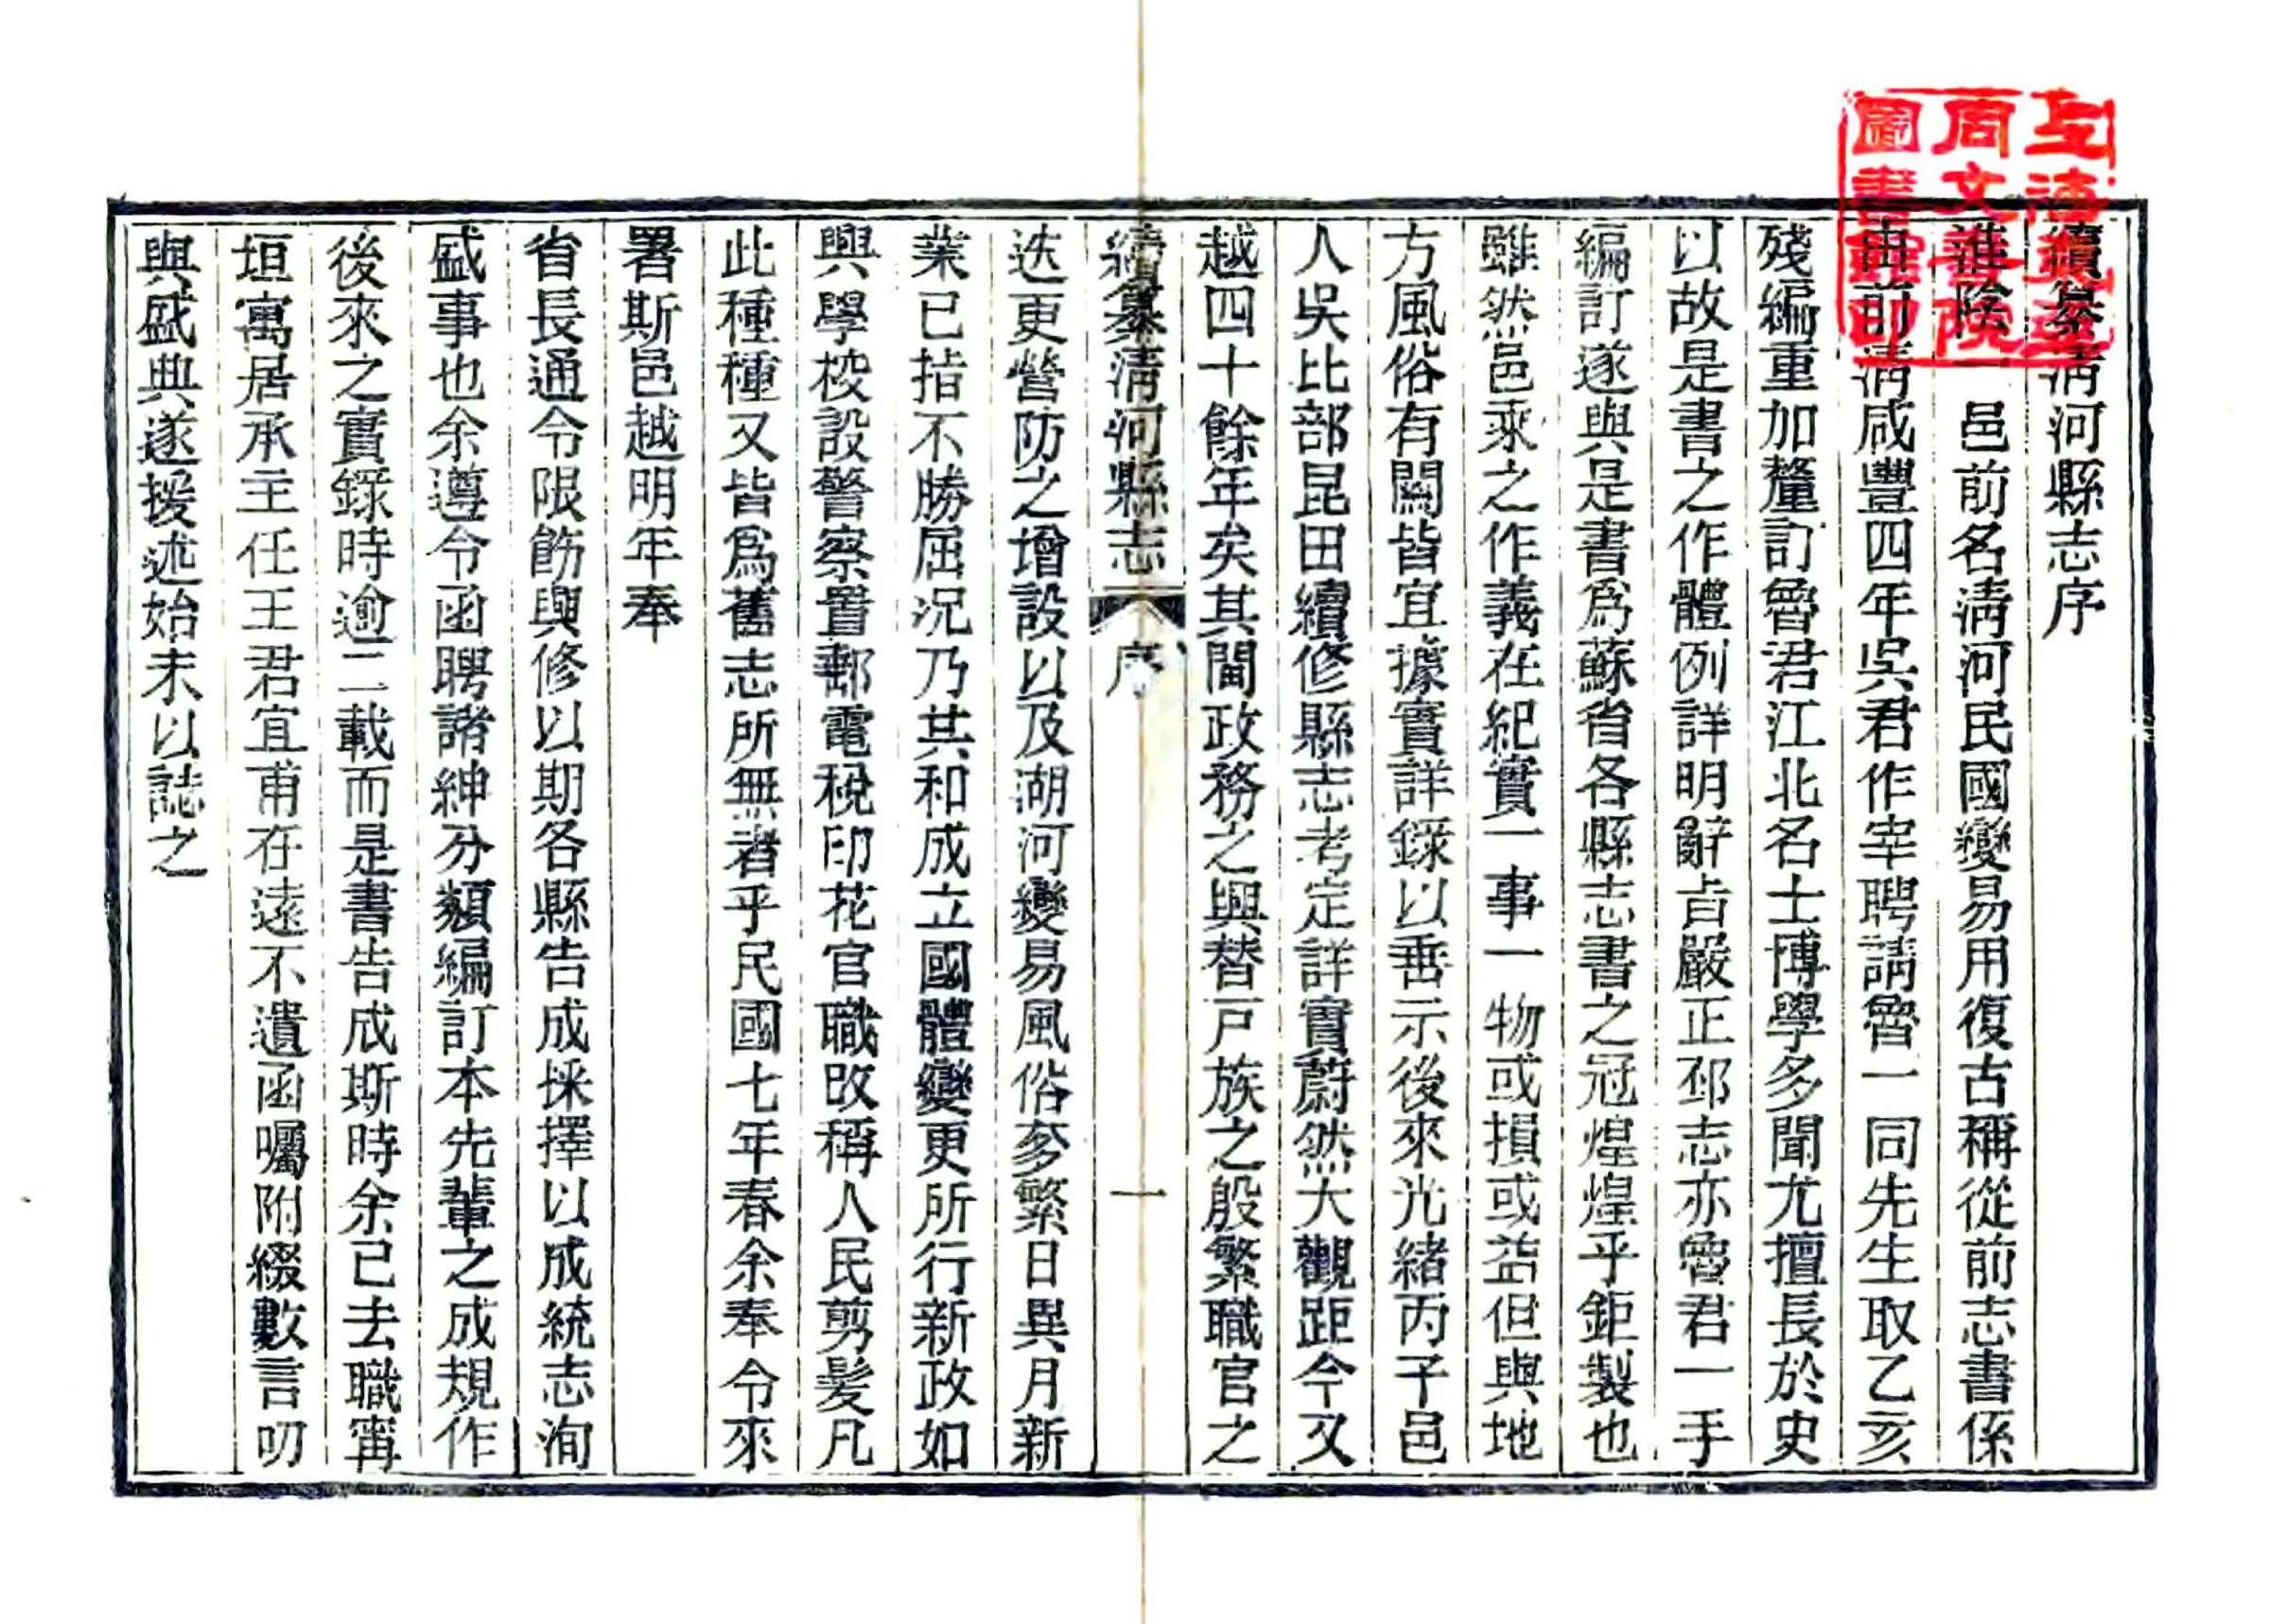 續纂淸河縣志序
淮陰一邑前名淸河民國變易用復古稱從前志書係
由前淸咸豐四年吳君作宰聘請魯一同先生取乙亥
殘編重加釐訂魯君江北名士博學多聞尤擅長於史
以故是書之作體例詳明辭旨嚴正邳志亦魯君一手
編訂遂與是書爲蘇省各縣志書之冠煌煌乎鉅製也
雖然邑乘之作義在紀實一事一物或損或益但與地
方風俗有關皆宜據實詳錄以垂示後來光緒丙子邑
人吳比部昆田續修縣志考定詳實蔚然大觀距今又
越四十餘年矣其閒政務之興替戸族之殷繁職官之
續纂淸河縣志 序 一
迭更營防之增設以及湖河變易風俗奓繁日異月新
業已指不勝屈况乃共和成立國體變更所行新政如
興學校設警察置郵電稅印花官職改稱人民剪髮凡
此種種又皆爲舊志所無者乎民國七年春余奉令來
署斯邑越明年奉
省長通令限飭興修以期各縣告成採擇以成統志洵
盛事也余遵令函聘諸紳分類編訂本先輩之成規作
後來之實錄時逾二載而是書告成斯時余已去職甯
垣寓居承主任王君宜甫存遠不遺函囑附綴數言叨
與盛典遂援述始末以誌之
同文書院
圖書館印